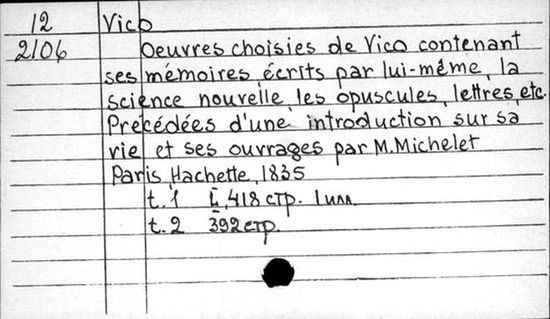 12 Vico
2106 Oeuvres choisies de Vico contenant
ses mémoires écrits par lui-même, la
science nouvelle, les opuscules, lettres, etc.
Precédées d'une introduction sur sa
vie et ses ouvrages par M. Michelet
Paris, Hachette, 1835
t. 1 418 стр. 1 илл.
t. 2 392 стр.